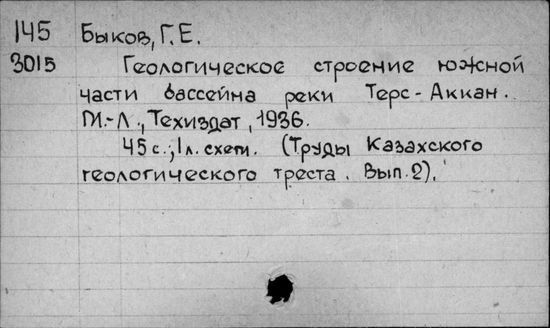 145 Быков, Г.Е.
3015 Геологическое строение южной
части бассейна реки Терс-Аккан.
М.-Л., Техиздат, 1936.
45 с.; 1 л. схем. (Труды Казахского
геологического треста. Вып. 2).